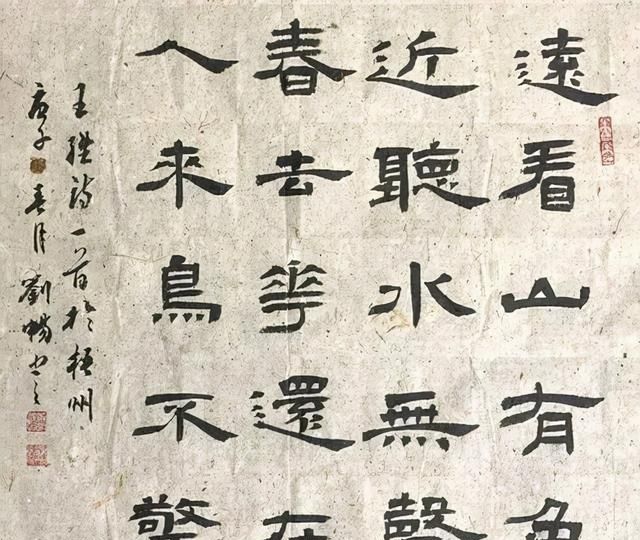 遠看山有色
近聽水無聲
春去華還在
人來鳥不驚
王維詩一首於梧州
庚子春月劉暢書之